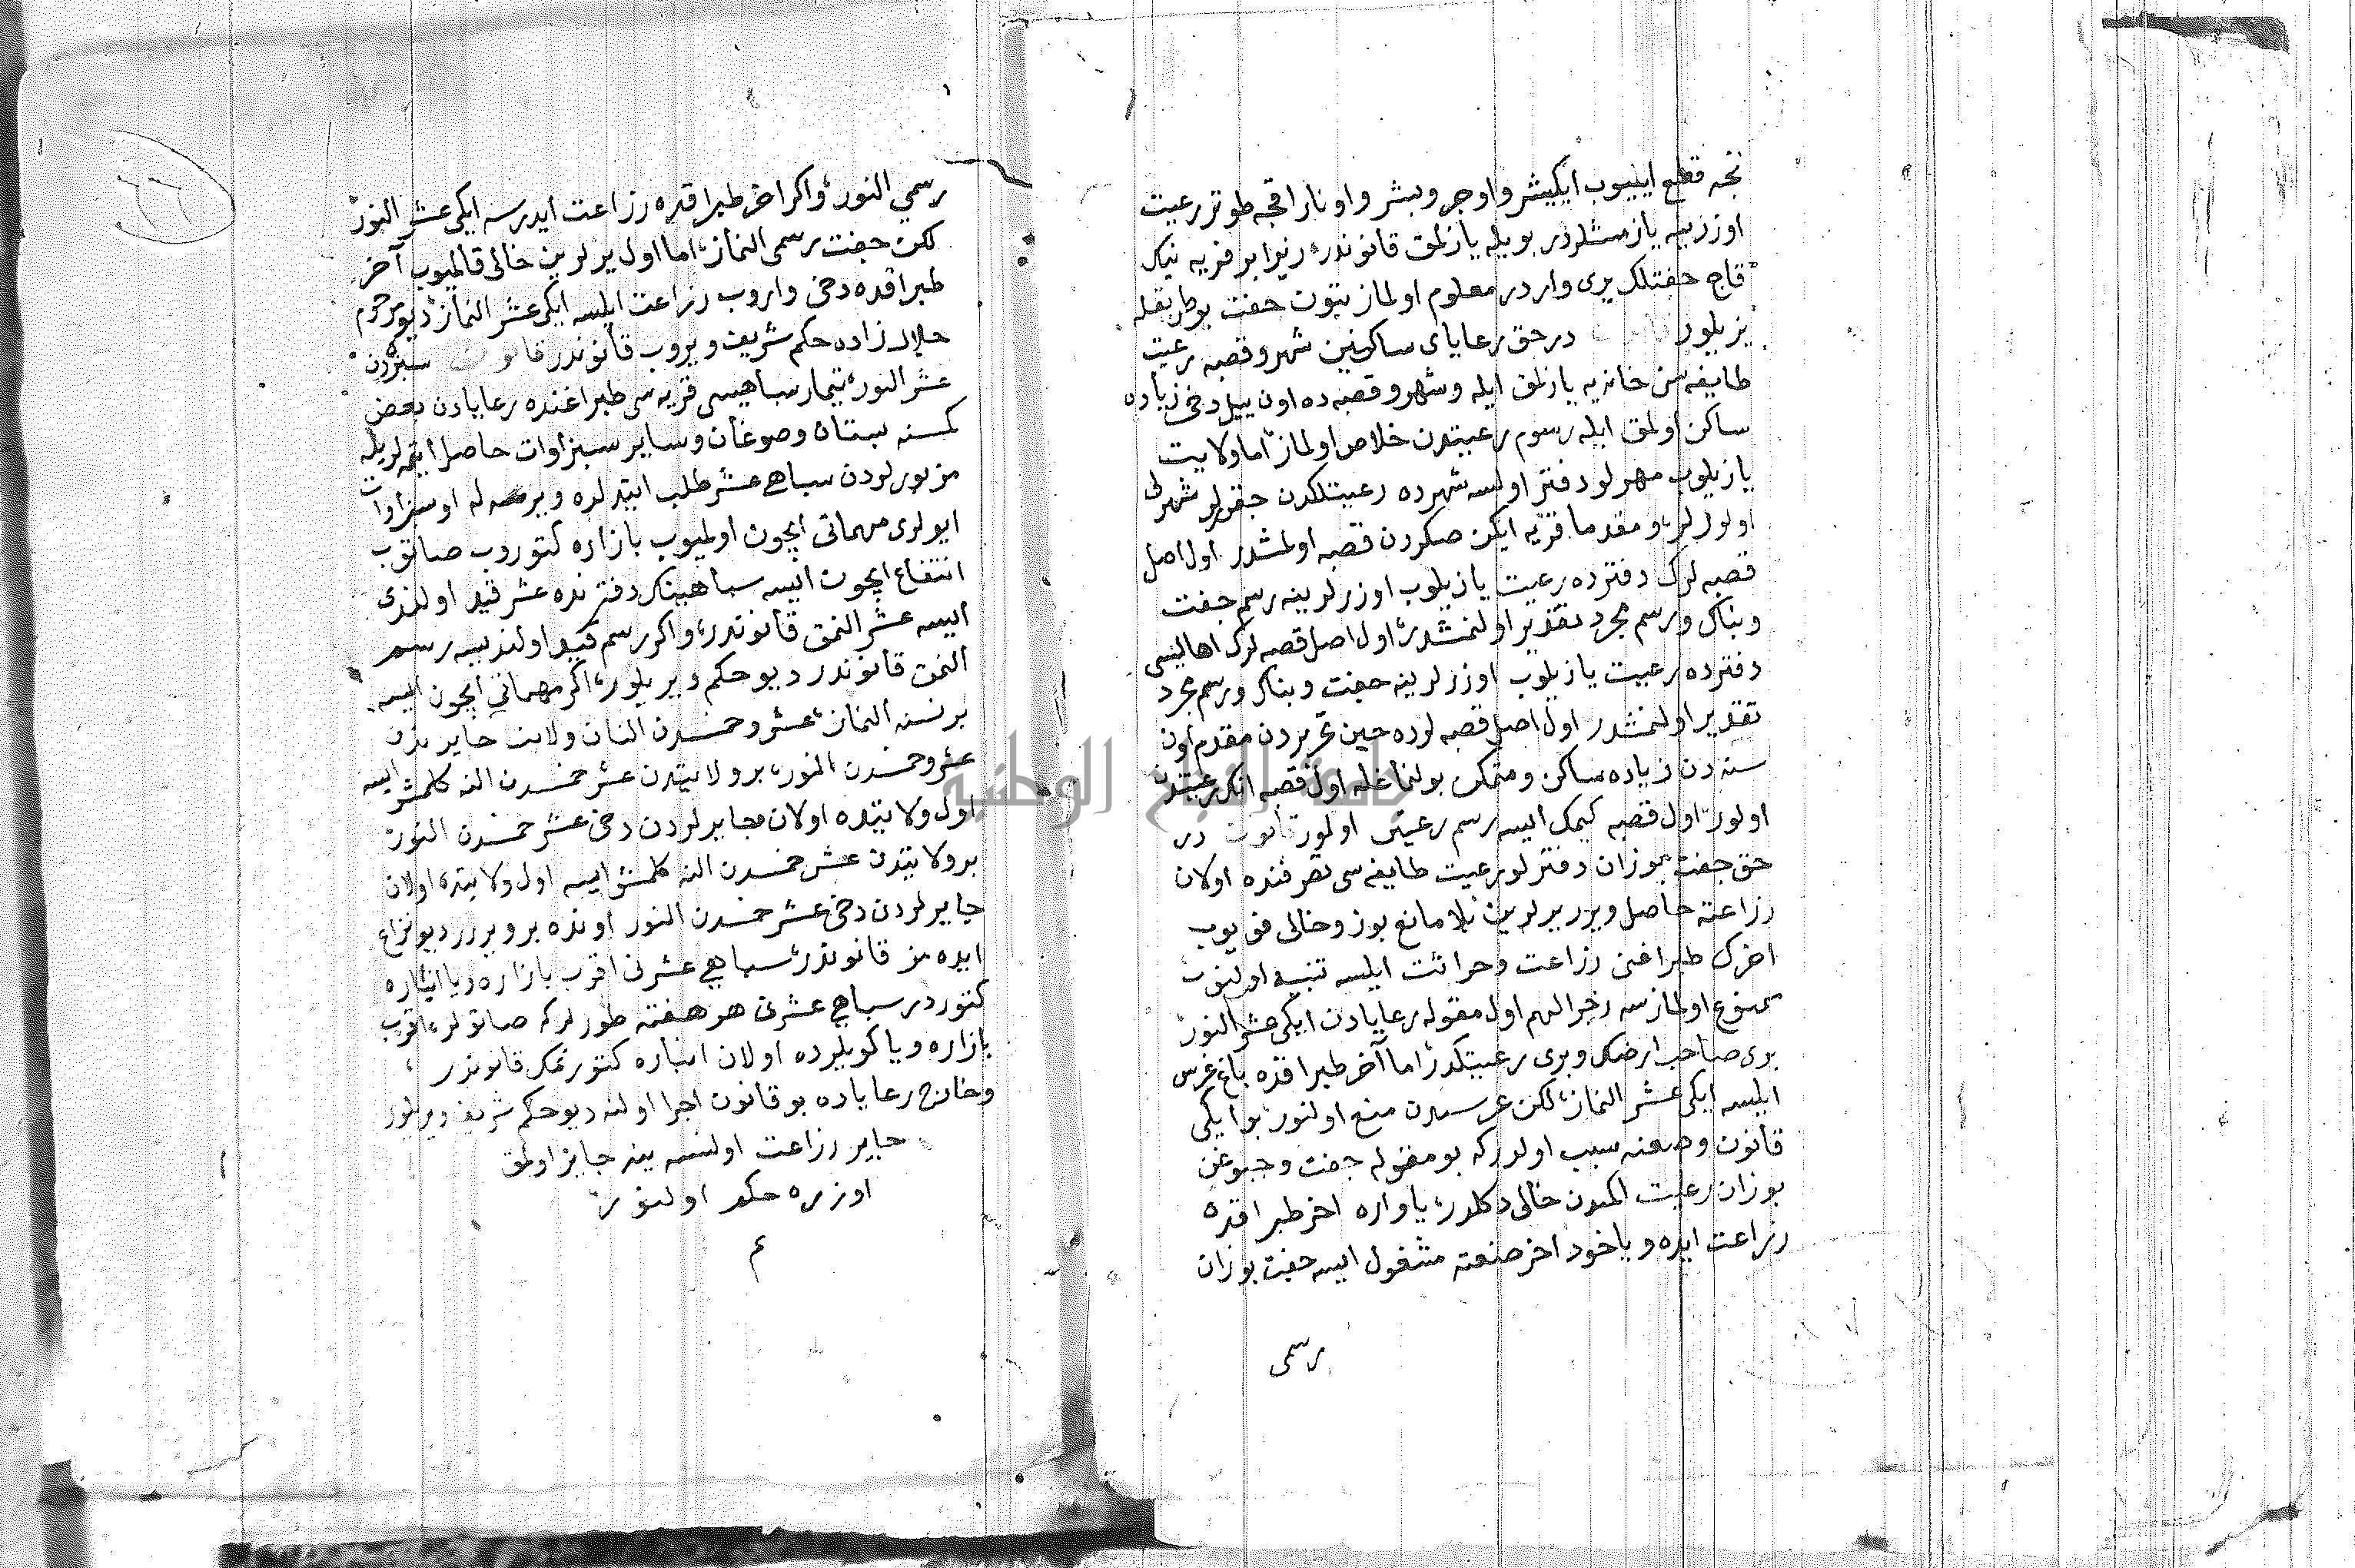 نجه قطع ايليوب ايكيشر و اوچر و بشر و اونار اقچه طوتر رعيت
اوزرينه يازمشلردر بويله يازلمق قانوندر زيرا بر قريه نيك
قاچ جفتلك يرى واردر معلوم اولماز بتون جفت بو طريقله
يزيلور در حق رعاياى ساكنين شهر و قصبه رعيت
طايفه سن خانه يه يازلمق ايله و شهر و قصبه ده اون ييل دخى زياده
ساكن اولمق ايله رسوم رعيتدن خلاص اولماز اما ولايت
يازيلوب مهرلو دفتر اولسه شهرده رعيتلكدن چقرلر شهرلى
اولورلر و مقدما قريه ايكن صكردن قصبه اولمشدر اول اصل
قصبه لرك دفترده رعيت يازيلوب اوزرلرينه رسم جفت
و بناك و رسم مجرد تقدير اولنمشدر اول اصل قصبه لرك اهاليسى
دفترده رعيت يازيلوب اوزرلرينه جفت و بناك و رسم مجرد
تقدير اولنمشدر اول اصل قصبه لرده حين تحريردن مقدم اون
سنه دن زياده ساكن و متمكن بولنماغله اول قصبه انك رعيتندن
اولور اول قصبه كيمك ايسه رسم رعيتى اولور قانون در
حق جفت بوزان دفترلو رعيت طايفه سى تصرفنده اولان
زراعته حاصل ويرر يرلرين بلا مانع بوز و خالى قويوب
اخرك طبراغن زراعت و حراثت ايلسه تنبيه اولنوب
ممنوع اولمازسه زجرا لهم اول مقوله رعايادن ايكى عشر النور
برى صاحب ارضك و برى رعيتلكدر اما آخر طبراقده باغ غرس
ايلسه ايكى عشر النماز لكن غرسدن منع اولنور بو ايكى
قانون وضعنه سبب اولدركه بو مقوله جفت و جبوغن
بوزان رعيت المكدن خالى دكلدر يا واره اخر طبراقده
زراعت ايده و ياخود اخر صنعته مشغول ايسه جفت بوزان
رسمى
رسمي النور و اكر اخر طبراقده زراعت ايدرسه ايكى عشر النور
لكن جفت رسمى النماز اما اول يرلرين خالى قالميوب آخر
طبراقده دخى واروب زراعت ايلسه ايكى عشر النماز ديو مرحوم
جلال زاده حكم شريف ويروب قانوندر قانون سبزدن
عشر النور تيمار سباهيسى قريه سى طبراغنده رعايادن بعض
كمسنه بستان و صوغان و ساير سبزاوات حاصل ايتمه لريله
مزبورلردن سباهى عشر طلب ايتدلرده ويرمسه لر او سبزاوات
ايولرى مهماتى ايچون اولميوب بازاره كتوروب صاتوب
انتفاع ايچون ايسه سباهينك دفترنده عشر قيد اولندى
ايسه عشر النمق قانوندر و اكر رسم قيد اولندسه رسم
النمق قانوندر ديو حكم ويريلور اكر مهماتى ايچون ايسه
بر نسنه النماز عشر و خمسدن النان ولايت جايرندن
عشر و خمسدن النور بر ولايتدن عشر خمسدن النه كلمش ايسه
اول ولايتده اولان مجايرلردن دخى عشر خمسدن النور
بر ولايتدن عشر خمسدن النه كلمش ايسه اول ولايتده اولان
جايرلردن دخى عشر خمسدن النور اونده بر ويررز ديو نزاع
ايده مز قانوندر سباهى عشرنى اقرب بازاره و يا انباره
كتوردر سباهى عشرنى هر هفته طورلركه صاتولر اقرب
بازاره و يا كويلرده اولان انباره كتورتمك قانوندر
و خارج رعاياده بو قانون اجرا اولنه ديو حكم شريف ويريلور
جاير زراعت اولنسه ينه جاير اولمق
اوزره حكم اولنور
م
جامعة النجاح الوطنية